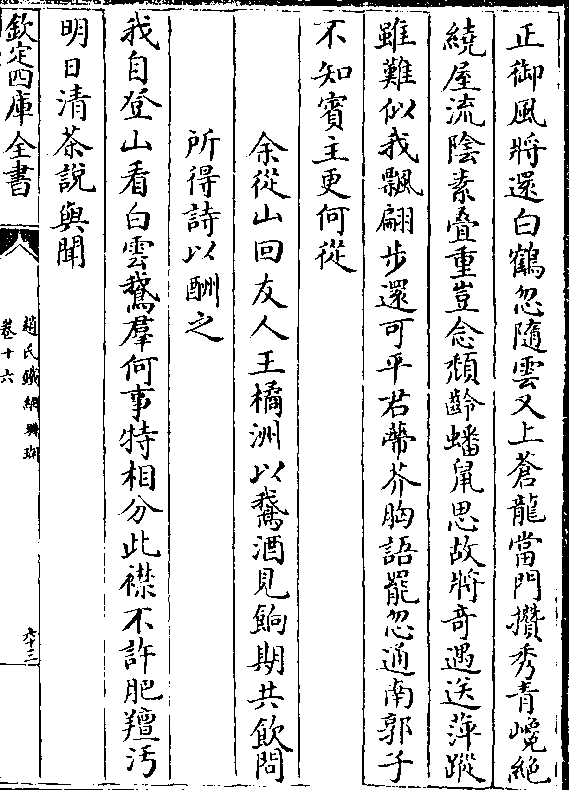 正御風將還白鶴忽隨雲又上蒼龍當門攢秀青巉絶
繞屋流陰素叠重豈念頽齡蟠鼠思故將竒遇送萍蹤
雖難似我飄翩步還可平君蔕芥胸語罷忽通南郭子
不知賓主更何從
余從山回友人王橘洲以鵞酒見餉期共飲問
所得詩以酬之
我自登山看白雲鵞羣何事特相分此襟不許肥羶汚
明日清茶說與聞
欽定四庫全書
趙氏鐵網珊瑚
卷十六